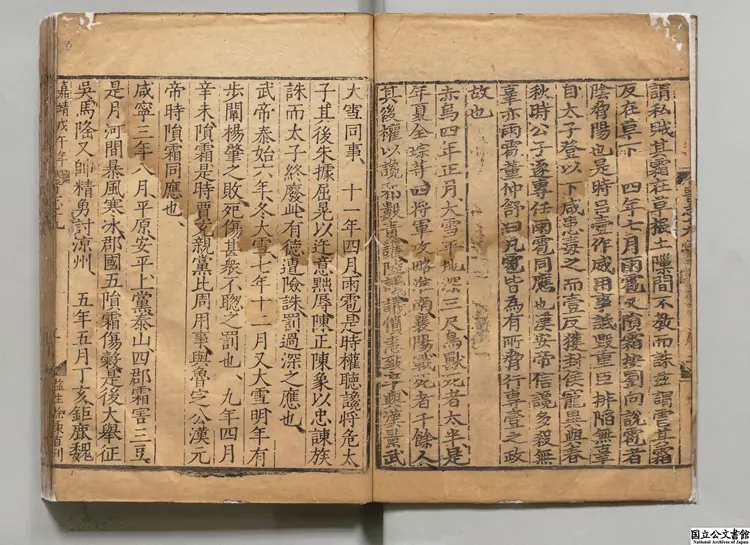 謂私賊其霜在草根土隙間不教而誅茲謂虐其霜
反在草下　四年七月雨雹又隕霜按劉向說雹者
陰脅陽也是時呂壹作威用事詆毀重臣排陷無辜
自太子登以下咸患毒之而壹反獲封侯寵異與春
秋時公子遂專任雨雹同應也漢安帝信讒多殺無
辜亦雨雹董仲舒曰凡雹皆為有所脅行專壹之政
故也
赤烏四年正月大雪平地深三尺鳥獸死者太半是
年夏全琮等四將軍攻略淮南襄陽戰死者千餘人
其後權以讒邪數責讓陸議議憤恚致卒與漢景武
大雪同事、十一年四月雨雹是時權聽讒將危太
子其後朱據屈晃以迕意黜辱陳正陳象以忠諫族
誅而太子終廢此有德遭險誅罰過深之應也、
武帝泰始六年冬大雪七年十二月又大雪明年有
步闡楊肇之敗死傷甚衆不聰之罰也、九年四月
辛未隕霜是時賈充親黨比周用事與魯定公漢元
帝時隕霜同應也、
咸寧三年八月平原安平上黨泰山四郡霜害三豆
是月河間暴風寒冰郡國五隕霜傷穀是後大舉征
吳馬隆又帥精勇討涼州、五年五月丁亥鉅鹿魏
嘉靖戊午年
国立公文書館
National Archives of Japan